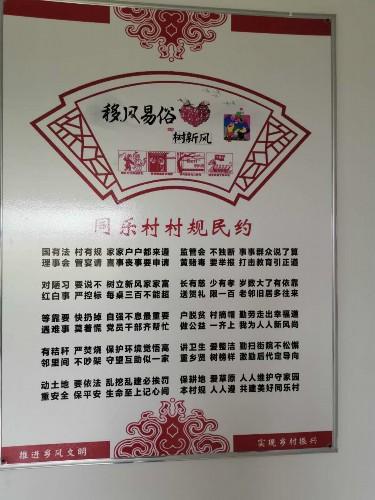 移风易俗
树新风
同乐村村规民约
国有法 村有规 家家户户都来遵 监管会 不独断 事事群众说了算
理事会 管宴请 喜事丧事要申请 黄赌毒 要举报 打击教育引正道
对陋习 要说不 树立新风家家富 长有慈 少有孝 岁数大了有依靠
红白事 严控标 每桌三百不能超 送贺礼 限一百 老邻旧居多往来
等靠要 快扔掉 自强不息最重要 户脱贫 村摘帽 勤劳走出幸福道
遇难事 莫着慌 党员干部齐帮忙 做公益 一齐上 我为人人新风尚
有秸秆 严焚烧 保护环境觉悟高 讲卫生 爱整洁 勤扫街院不松懈
邻里间 不吵架 守望互助似一家 重乡贤 树榜样 激励后代定导向
动土地 要依法 乱挖乱建必挨罚 保耕地 爱草原 人人维护守家园
重安全 保平安 生命至上记心间 本村规 人人遵 共建美好同乐村
推进乡风文明
实现乡村振兴